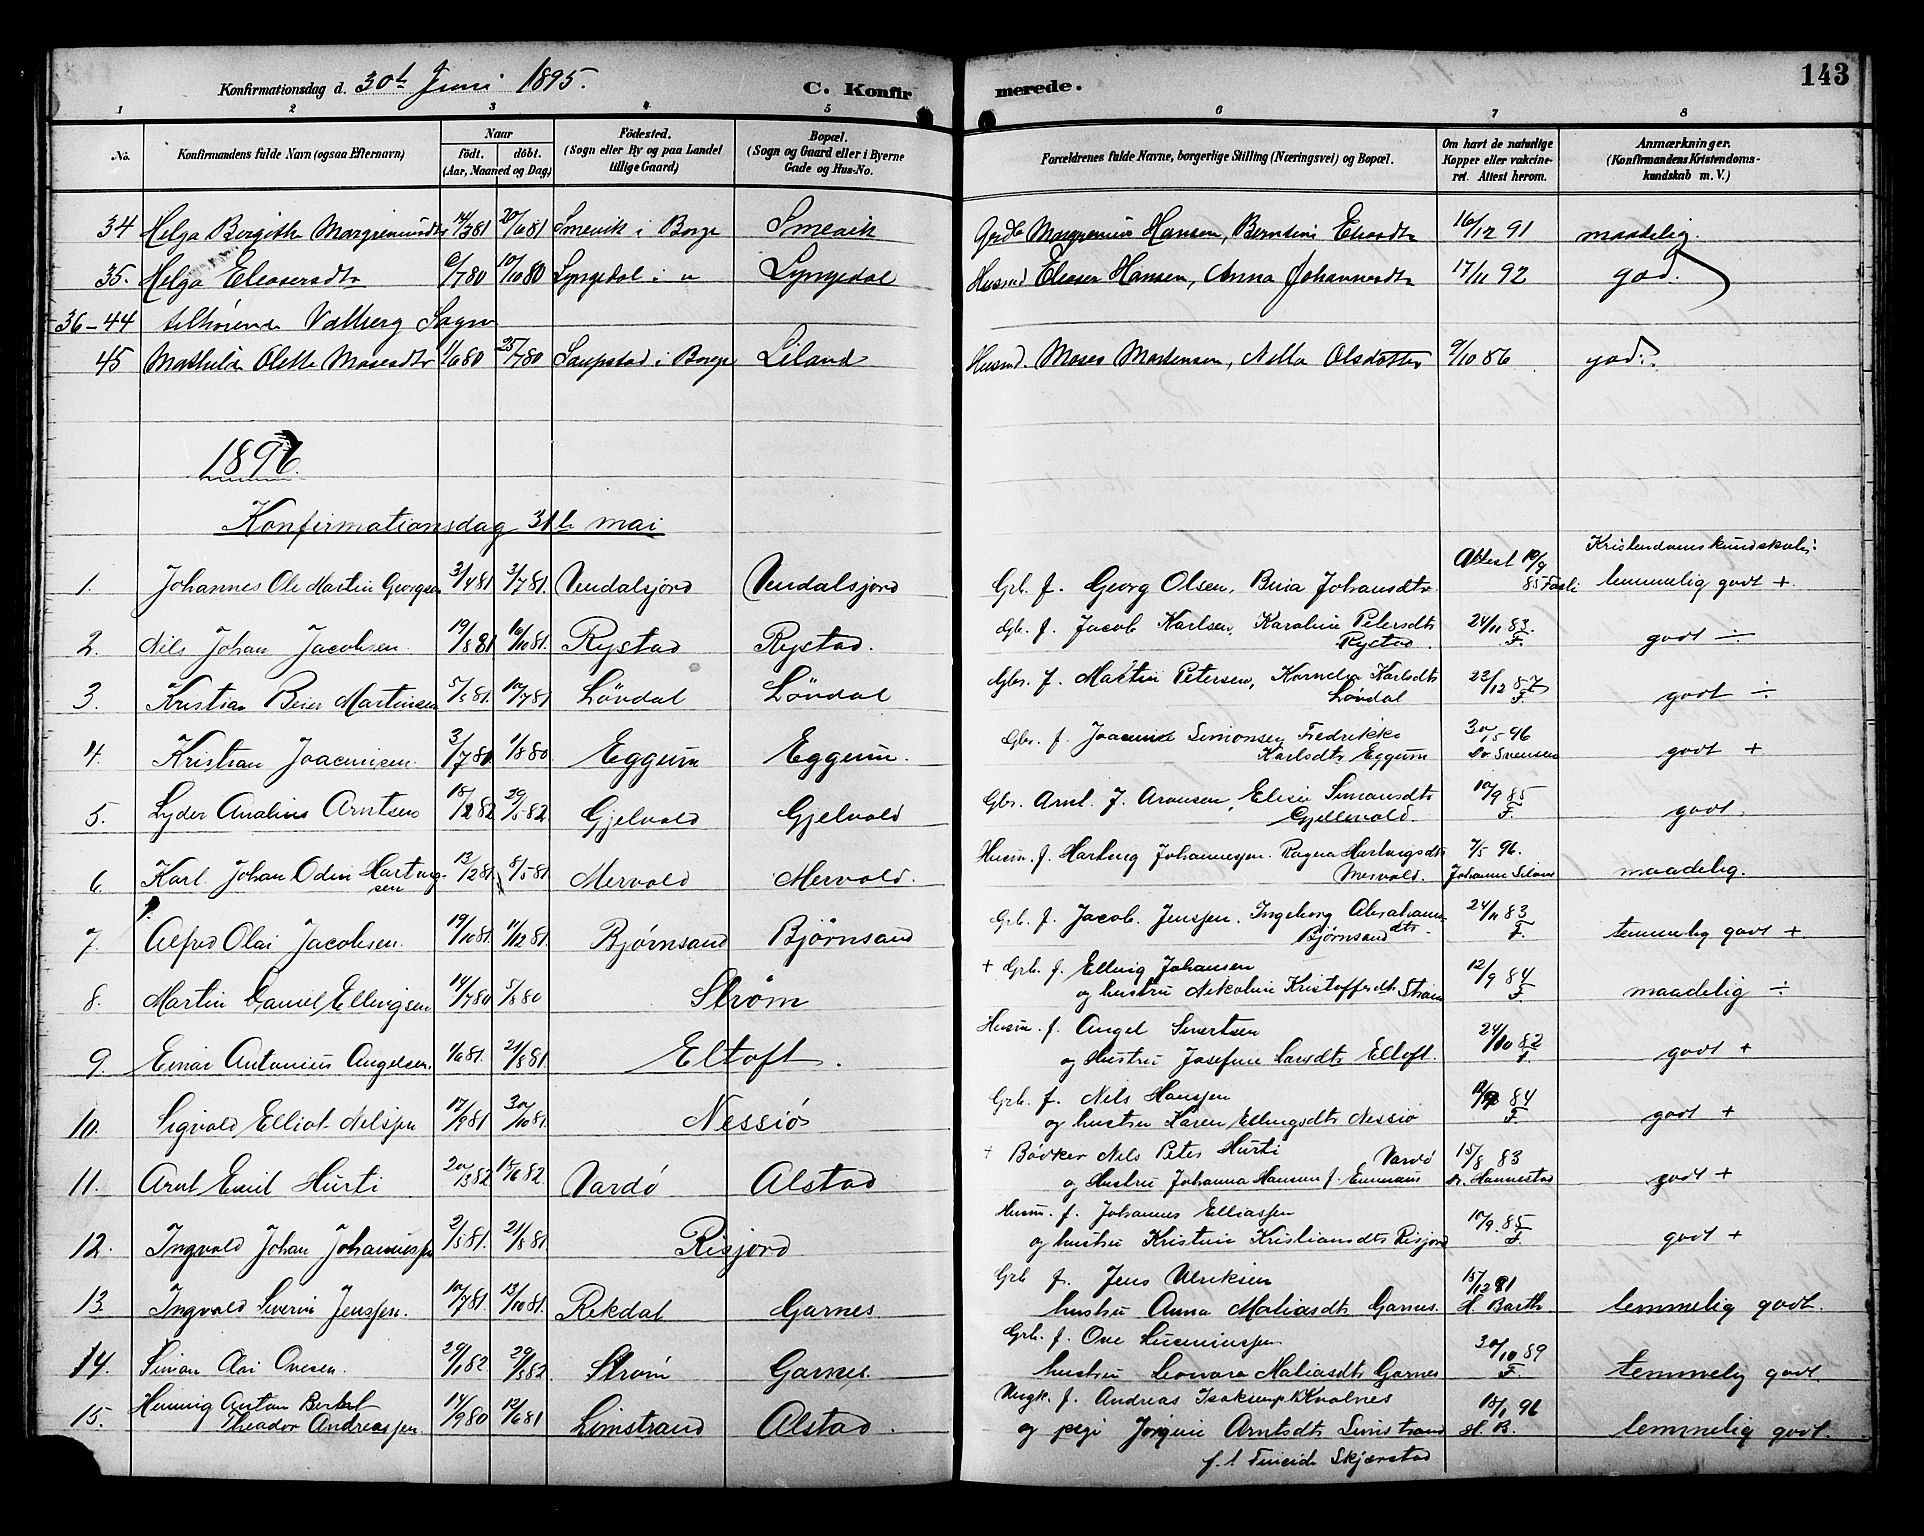 Konfirmationsdag d. 30te Juni 1895. C. Konfirmerede. 143
1 2 3 4 5 6 7 8
No. Konfirmandens fulde Navn (ogsaa Efternavn) Naar født. døbt. (Aar, Maaned og Dag) Födested. (Sogn eller By og paa Landet tillige Gaard) Bopæl. (Sogn og Gaard eller i Byerne Gade og Hus-No. Forældrenes fulde Navne, borgerlige Stilling (Næringsvei) og Bopæl. Om havt de naturlige Kopper eller vakcineret. Attest herom. Anmærkninger. (Konfirmandens Kristendomskundskab m. V.)
34 Helga Bergitte 20/6 81 Smevik i Borge Smevik Hansen, 16/12 91 maadelig.
35. Helga Eleasersdtr 6/7 80 10/10 80 Lyngedal i " Lyngedal Husmd Eleaser Hansen, Anna Johannesdtr 17/11 92 god.
36-44 tilhörende Valberg Sogn
45 Mathilde Olette Mosesdtr 1/6 80 25/7 80 Saupstad i Borge Liland Husmd. Moses Mortensen, Olsdatter 9/10 86 god.
1896.
Konfirmationsdag 31te mai
Kristendomskundskab:
1. Johannes Ole Martin Georgsen 3/4 81 3/7 81. Vendalsjord Vendalsjord Grb. f. Georg Olsen, Johansdtr Attest 10/9 85 temmelig godt +
2. Nils Johan Jacobsen. 19/8 81 16/10 81. Rystad Rystad. Gbr. f. Jacob Karlsen, Karoline Petersdtr Rystad. 24/11 83. F. godt ÷
3. Kristian Beier Martinsen 5/5 81. 10/7 81 Löndal Löndal Gbr. f. Martin Petersen, Kornelia Karlsdtr Löndal 22/12 87 F. godt ÷
4. Kristian Joacimsen 3/7 80 1/8 80 Eggum Eggum. Gbr. f. Simonsen, Fredrikke Karlsdtr Eggum 30/5 96 Dr Svensen godt +
5. Lyder Analius Arntsen 18/2 82 29/5 82. Gjelvold Gjelvold Gbr. Arnt. J. Aronsen, Elise Simonsdtr Gjellevold. 10/9 85 F. godt
6. Karl Johan Odin Hartvigsen 13/2 81. 8/5 81 Mervold Mervold. Husm. f. Hartvig Johannessen. Ragna Hartvigsdtr Mervold. 7/5 96. maadelig.
7. Alfred Olai Jacobsen. 19/10 81. 11/12 81 Bjørnsand Bjørnsand Grb. f. Jacob Jenssen. Ingeborg Abrahamsdtr. Bjørnsand 24/11 83 F. temmelig godt +
8. Martin Daniel Ellingsen 14/7 80 5/8 80 Strøm + Grb. f. Elling Johansen og hustru Nikoline Kristoffersdtr Strøm 12/9 84 F maadelig ÷
9. Einar Antonius Angelsen. 1/6 81. 21/8 81. Eltoft. Husm. f. Angel Sivertsen og Hustru Josefine Larsdtr Eltoft. 24/10 82 F. godt +
10. Sigvald Elliot Nilssen 17/9 81 30/10 81. Nessiø Grb. f. Nels Hanssen og hustru Karen Ellingsdtr Nessiø 84 F. godt +
11. Arnt Emil Hurti 20/3 82 18/6 82 Vardö Alstad + Bödker Nils Peter Hurti Vardö og Hustru Johanna Hansen f. 15/8 83 Dr. Hannestad godt +
12. Ingvald Johan Johannessen 2/5 81. 21/8 81. Risjord Husm. f. Johannes Elliassen og hustru Kristine Kristiansdtr Risjord 10/9. 85. F. godt +
13. Ingvald Severin Jenssen. 10/7 81. 13/10 81. Rekdal Garnes. Grb f. Jens Ulriksen hustru Anna Matiasdtr Garnes. 15/12 81 H. Barth temmelig godt.
14. Simon Olai Ovesen. 29/1 82. 29/5 82 Strøm Garnes. Grb. f. Ove hustru Leonora Matiasdtr Garnes 30/10 89 F. temmelig godt
15. Henning Anton Theodor Andreassen. 14/9 80 12/6 81 Limstrand Alstad. Ungk. f. Andreas og pige Jørgine Arntsdtr Limstrand 18/1 96 H. B. temmelig godt.
Skjærstad